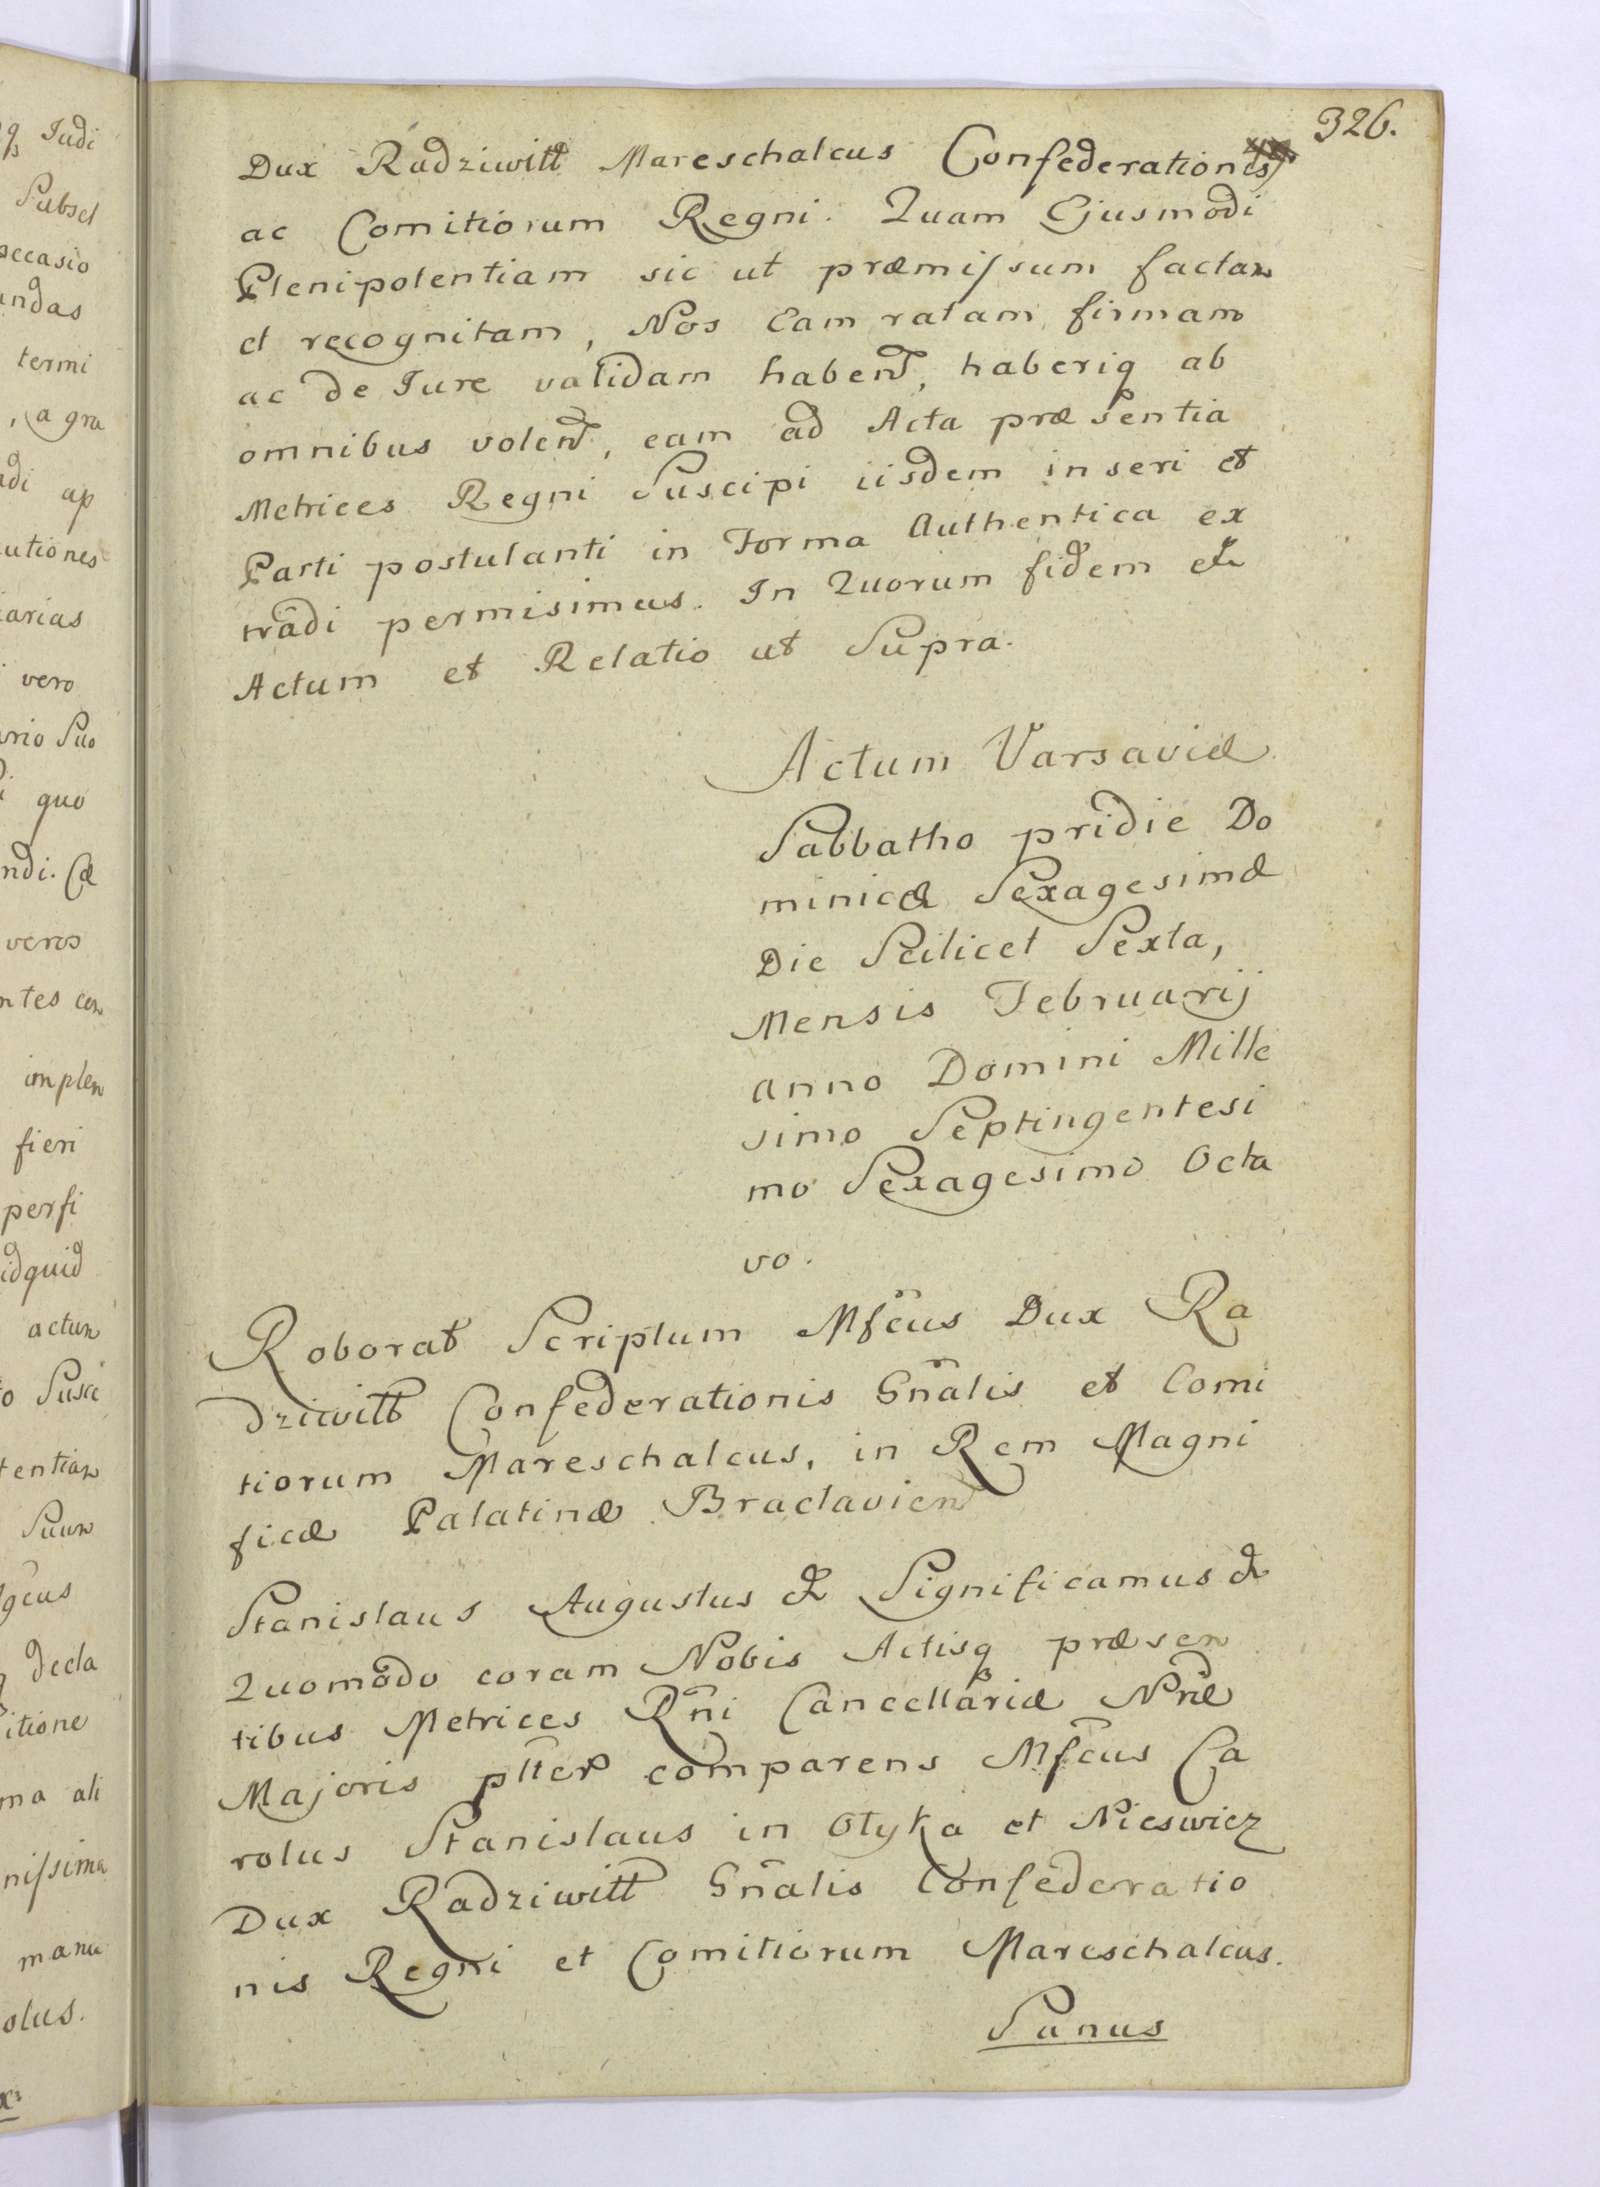 326.
Dux Radziwiłł Mareschalcus Confederationis
ac Comitiorum Regni. Quam Ejusmodi
Plenipotentiam sic ut præmissum factam
et recognitam, Nos Eam ratam, firmam
ac de Jure validam haben̄, haberiq ab
omnibus volen̄, eam ad Acta præsentia
Metrices Regni Suscipi iisdem inseri et
Parti postulanti in Forma Authentica ex
tradi permisimus. In Quorum fidem &
Actum et Relatio ut Supra.
Actum Varsaviæ
Sabbatho pridie Do
minicæ Sexagesimæ
Die Scilicet Sexta,
Mensis Februarij
anno Domini Mille
simo Septingentesi
mo Sexagesimo Octa
vo.
Roborat Scriptum Mfc̄us Dux Ra
dziwiłł Confederationis Gn̄alis et Comi
tiorum Mareschalcus, in Rem Magni
ficæ Palatinæ Braclavien̄
Stanislaus Augustus & Significamus &
Quomodo coram Nobis Actisq præsen
tibus Metrices Rn̄i Cancellariæ Nr̄æ
Majoris ptter comparens Mfc̄us Ca
rolus Stanislaus in Ołyka et Nieswiez
Dux Radziwiłł Gn̄alis Confederatio
nis Regni et Comitiorum Mareschalcus.
Sanus
Judi
Subsel
occasio
andas
termi
, a gra
adi ap
cutiones
iarias
vero
ario Suo
quo
ndi. Cæ
veros
ntes con
implen
fieri
perfi
idquid
actum
o Susci
tentiam
Suum
gcus
decla
itione
ma ali
nissima
manu
olus.